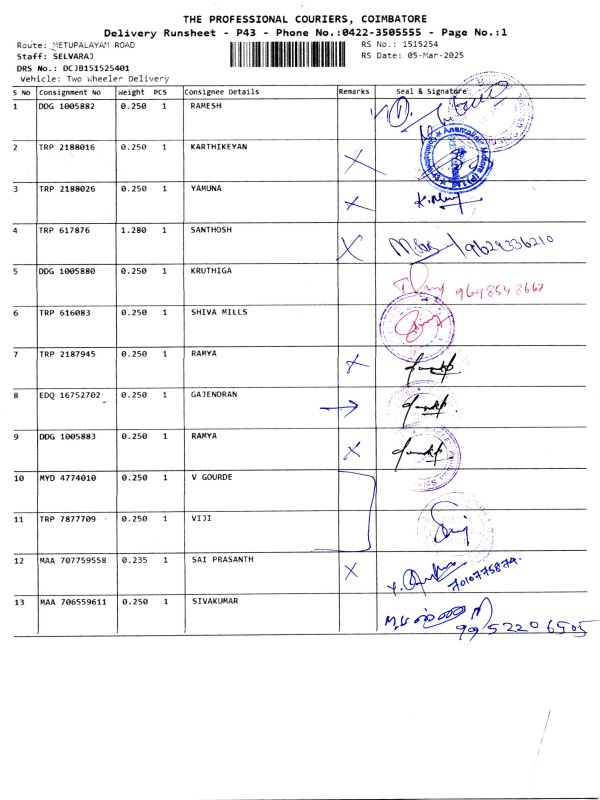 THE PROFESSIONAL COURIERS, COIMBATORE
Delivery Runsheet - P43 - Phone No.:0422-3505555 - Page No.:1
Route: METUPALAYAM ROAD
RS No.: 1515254
Staff: SELVARAJ
RS Date: 05-Mar-2025
DRS No.: DCJB151525401
Vehicle: Two Wheeler Delivery
S No Consignment No Weight PCS Consignee Details Remarks Seal & Signature
1 DDG 1005882 0.250 1 RAMESH
2 TRP 2188016 0.250 1 KARTHIKEYAN X
3 TRP 2188026 0.250 1 YAMUNA X
4 TRP 617876 1.280 1 SANTHOSH X 9629336210
5 DDG 1005880 0.250 1 KRUTHIGA 9698548667
6 TRP 616083 0.250 1 SHIVA MILLS
7 TRP 2187945 0.250 1 RAMYA X
8 EDQ 16752702 0.250 1 GAJENDRAN →
9 DDG 1005883 0.250 1 RAMYA X
10 MYD 4774010 0.250 1 V GOURDE
11 TRP 7877709 0.250 1 VIJI
12 MAA 707759558 0.235 1 SAI PRASANTH X 7010775874.
13 MAA 706559611 0.250 1 SIVAKUMAR 9952206505